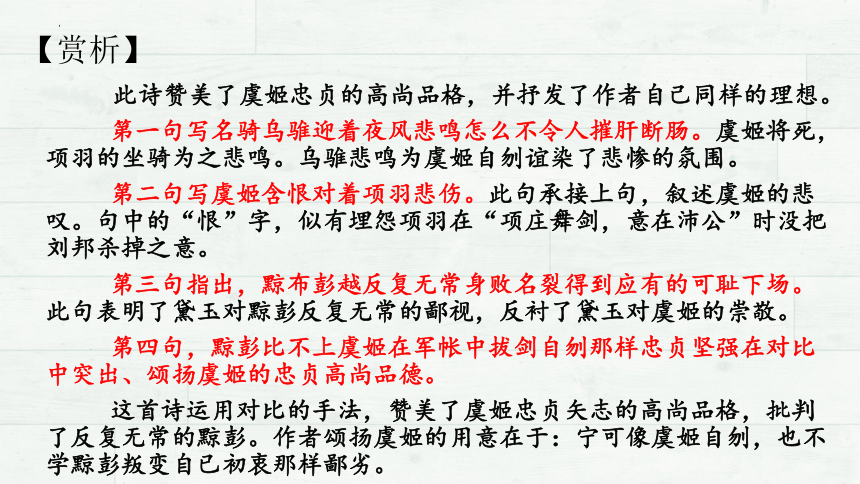 【赏析】
此诗赞美了虞姬忠贞的高尚品格，并抒发了作者自己同样的理想。
第一句写名骑乌骓迎着夜风悲鸣怎么不令人摧肝断肠。虞姬将死，
项羽的坐骑为之悲鸣。乌骓悲鸣为虞姬自刎谊染了悲惨的氛围。
第二句写虞姬含恨对着项羽悲伤。此句承接上句，叙述虞姬的悲
叹。句中的“恨”字，似有埋怨项羽在“项庄舞剑，意在沛公”时没把
刘邦杀掉之意。
第三句指出，黥布彭越反复无常身败名裂得到应有的可耻下场。
此句表明了黛玉对黥彭反复无常的鄙视，反衬了黛玉对虞姬的崇敬。
第四句，黥彭比不上虞姬在军帐中拔剑自刎那样忠贞坚强在对比
中突出、颂扬虞姬的忠贞高尚品德。
这首诗运用对比的手法，赞美了虞姬忠贞矢志的高尚品格，批判
了反复无常的黥彭。作者颂扬虞姬的用意在于：宁可像虞姬自刎，也不
学黥彭叛变自已初衷那样鄙劣。